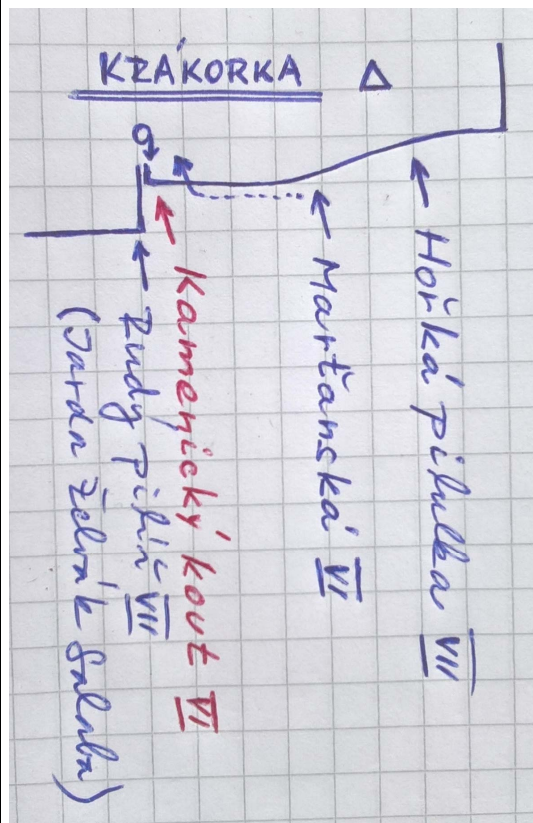 KRÁKORKA
Hořká pilulka VII
Marťanská VI
Kamenický kout VI
Rudy Pilíř VII
(Jarda Želvák Salaba)